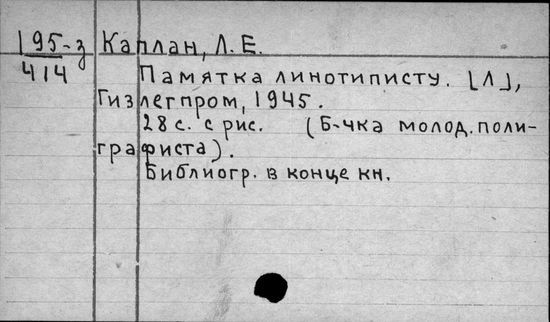 195-з Каплан, Л. Е.
414 Памятка линотиписту. [Л],
Гизлегпром, 1945.
28 с. с рис. (Б-чка молод. поли-
графиста).
Библиогр. в конце кн.